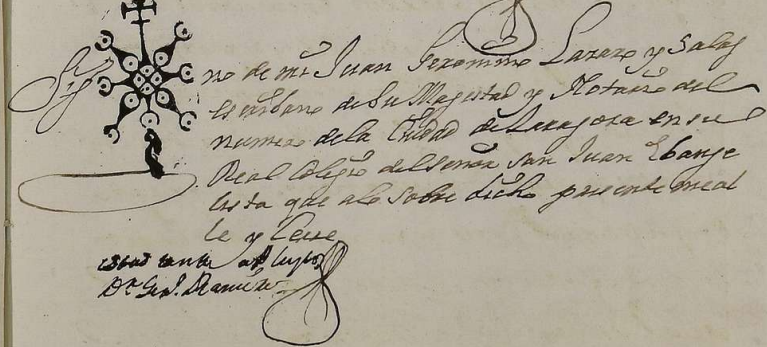 Sig no de mi Juan Geronimo Lazaro y Salas
escribano de Su Magestad y Notario del
numero de la Ciudad de Zaragoza en su
Real Colegio del Señor San Juan Ebange
lista que a lo sobre dicho presente me al
le y Cerre